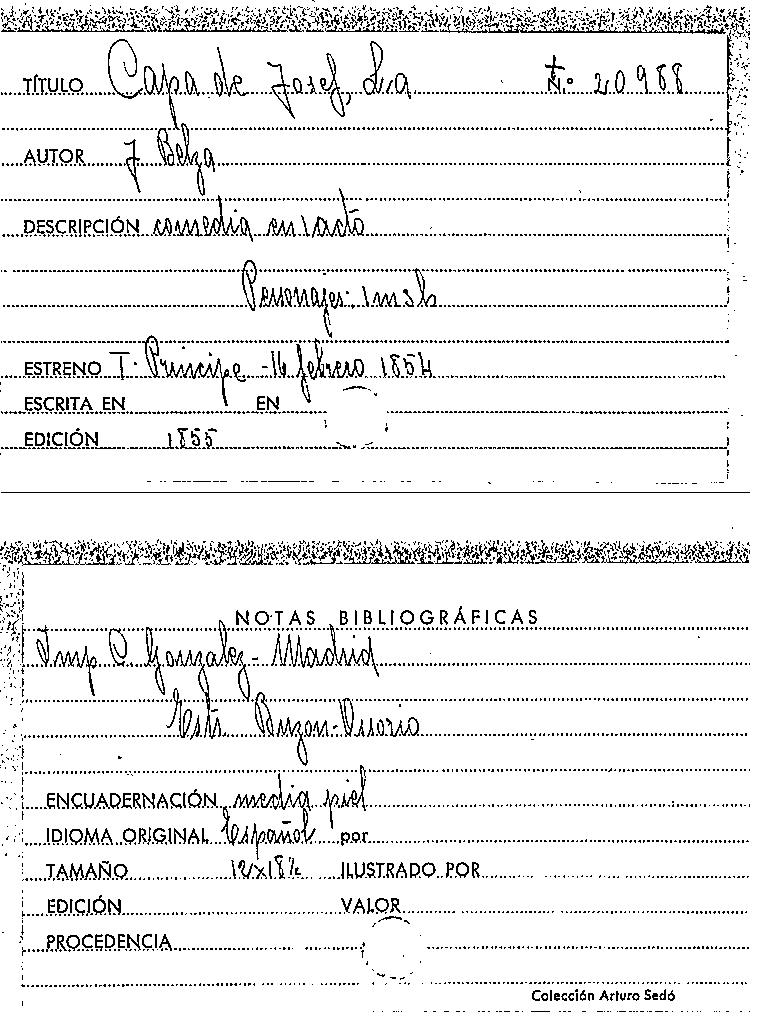 TÍTULO Capa de Josef, La N.º 20988
AUTOR J Belza
DESCRIPCIÓN comedia en 1 acto
Personajes: 1m 3h
ESTRENO T. Principe - 16 febrero 1854
ESCRITA EN EN
EDICIÓN 1855
NOTAS BIBLIOGRÁFICAS
Imp C. Gonzalez - Madrid
Estr. Buzon-Osorio
ENCUADERNACIÓN media piel
IDIOMA ORIGINAL Español por
TAMAÑO 12x18½ ILUSTRADO POR
EDICIÓN VALOR
PROCEDENCIA
Colección Arturo Sedó